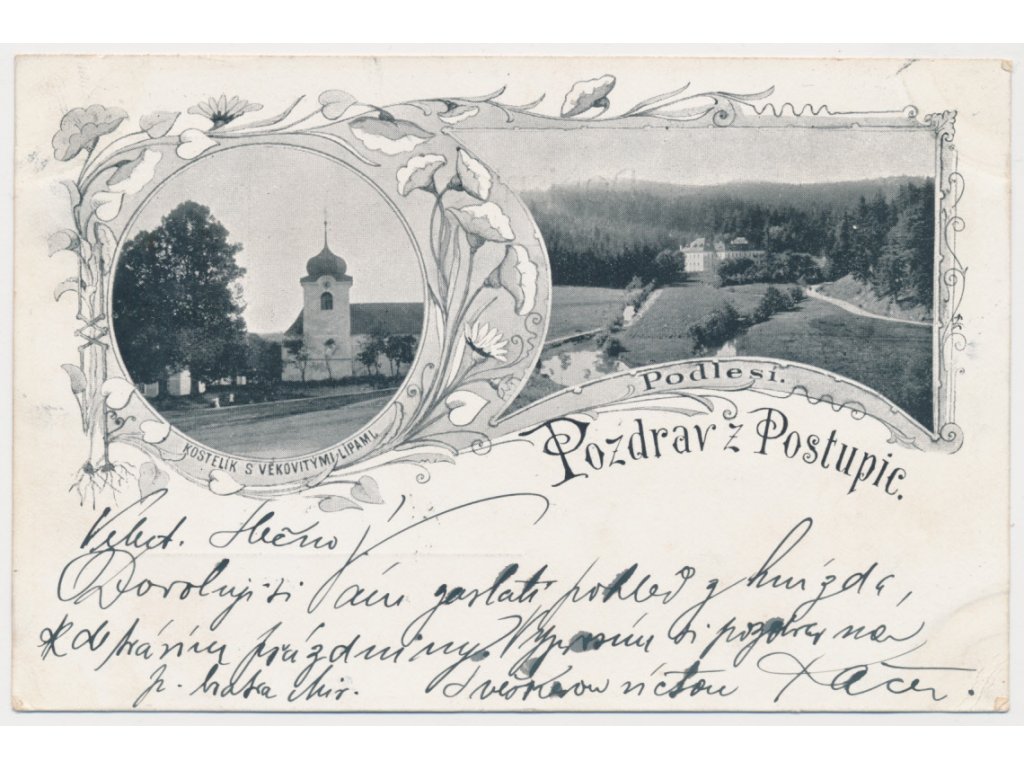 Podlesí.
KOSTELÍK S VĚKOVITÝMI LÍPAMI.
Pozdrav z Postupic.
Velect. Slečno!
Dovoluji si Vám zaslati pohled z hnízda,
kde trávím prázdniny. Vyprosím si pozdrav na
p. bratra Mir. S veškerou úctou Kačer.